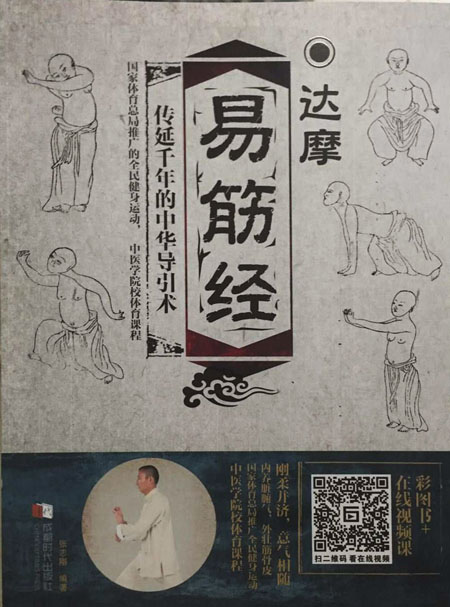 达摩
易筋经
传延千年的中华导引术
国家体育总局推广的全民健身运动，中医学院校体育课程
彩图书+
在线视频课
扫二维码 看在线视频
刚柔并济、意气相随
内养脏腑气、外壮筋骨皮
国家体育总局推广全民健身运动
中医学院校体育课程
编著
成都时代出版社